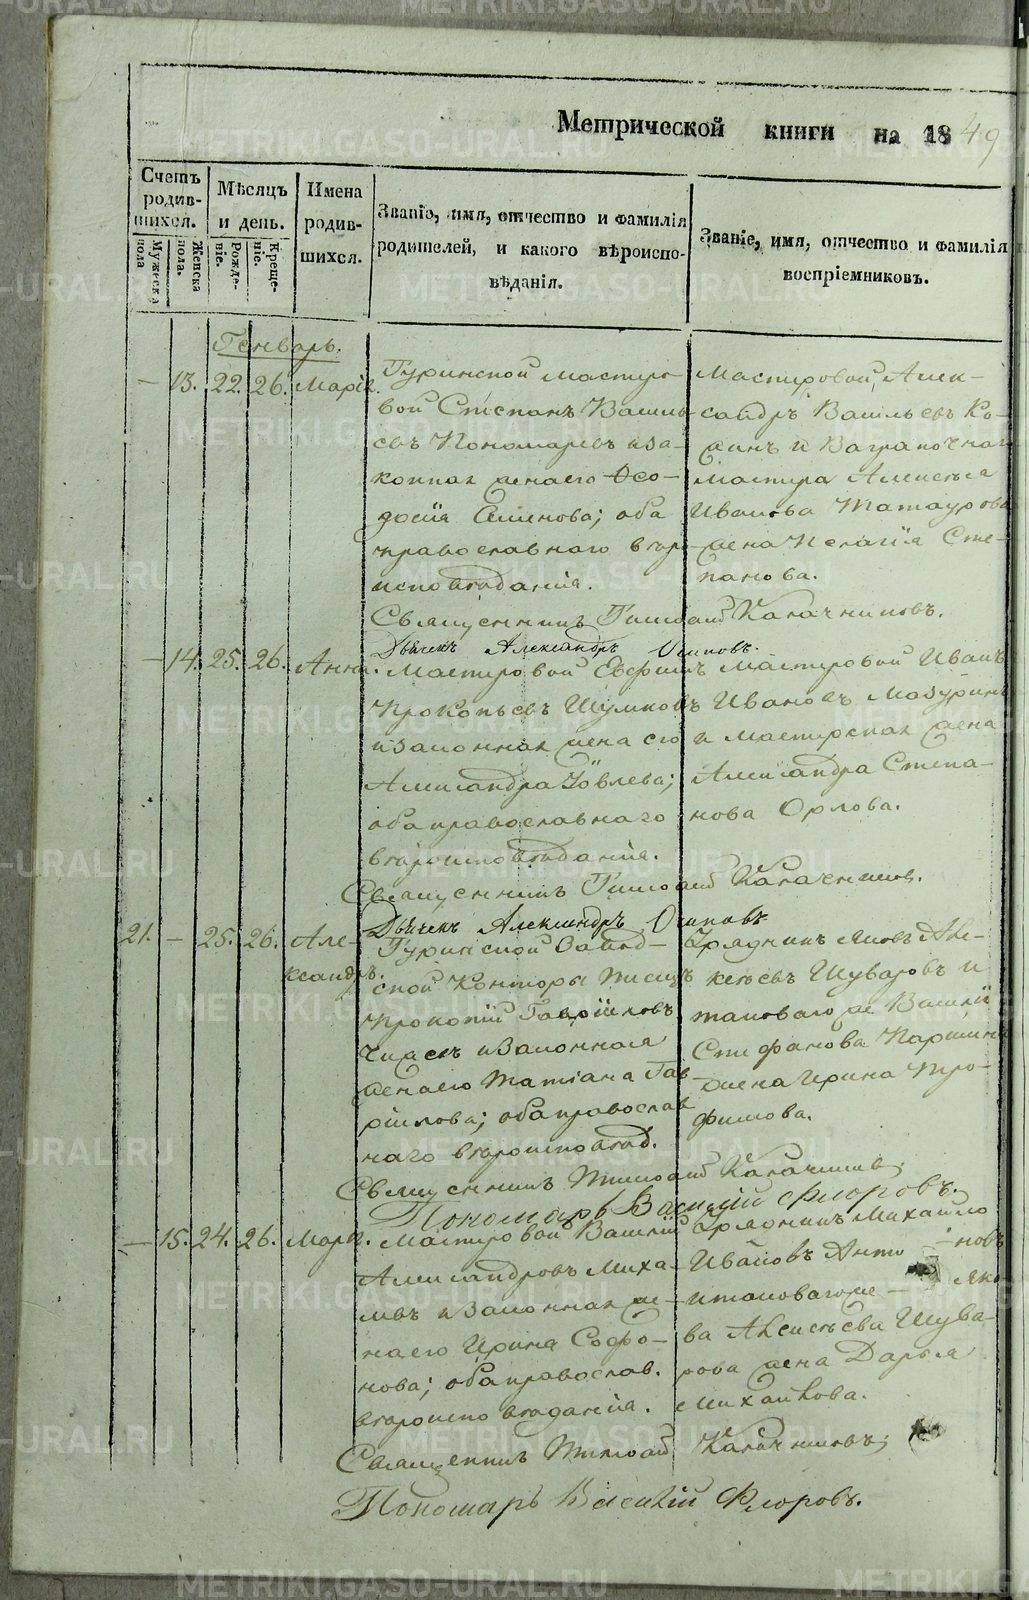 Метрической книги на 1849
Счетъ родив-шихся.
Мѣсяцъ и день.
Имена родив-шихся.
Званіе, имя, отчество и фамилія родителей, и какого вѣроиспо-вѣданія.
Званіе, имя, отчество и фамилія воспріемниковъ.
Мужеска пола
Женска пола.
Рожде-ніе.
Креще-ніе.
Генварь.
— 13. 22. 26. Марія.
Туринской мастеро-
вой Степанъ Василь-
евъ Пономаревъ и за-
конная жена его Ѳео-
досія Семенова; оба
православнаго вѣро-
исповѣданія.
Мастеровой Алек-
сандръ Васильевъ Ко-
и
мастера Алексѣя
Иванова Татаурова
жена Пелагія Сте-
панова.
Священникъ Тимоѳей Калачниковъ.
Дьячекъ Александръ Осиповъ.
— 14. 25. 26. Анна.
Мастеровой Евфимъ
Прокопьевъ Шумковъ
и законная жена его
Александра Іовлева;
оба православнаго
вѣроисповѣданія.
Мастеровой Иванъ
Ивановъ Мазуринъ
и мастерская жена
Александра Степа-
нова Орлова.
Священникъ Тимоѳей Калачниковъ.
Дьячекъ Александръ Осиповъ
21. — 25. 26. Але-
ксандръ.
Туринской Завод-
ской Конторы Писецъ
Прокопій Гавріиловъ
и законная
жена его Татіана Гав-
ріилова; оба православ
наго вѣроисповѣд.
Урядникъ Яковъ Але-
ксѣевъ Шуваровъ и
таковаго же Василія
Стефанова Паршина
жена Ирина Тро-
фимова.
Священникъ Тимоѳей Калачниковъ;
Пономарь Василій Флоровъ.
— 15. 24. 26. Марія.
Мастеровой Василій
Александровъ Миха-
левъ и законная же-
на его Ирина Софо-
нова; оба православ.
вѣроисповѣданія.
Урядникъ Михайло
Ивановъ Анто — новъ
и таковаго же — Яко
ва Алексѣева Шува-
рова жена Дарья
Михайлова.
Священникъ Тимоѳей Калачниковъ;
Пономарь Василій Флоровъ.
METRIKI.GASO-URAL.RU